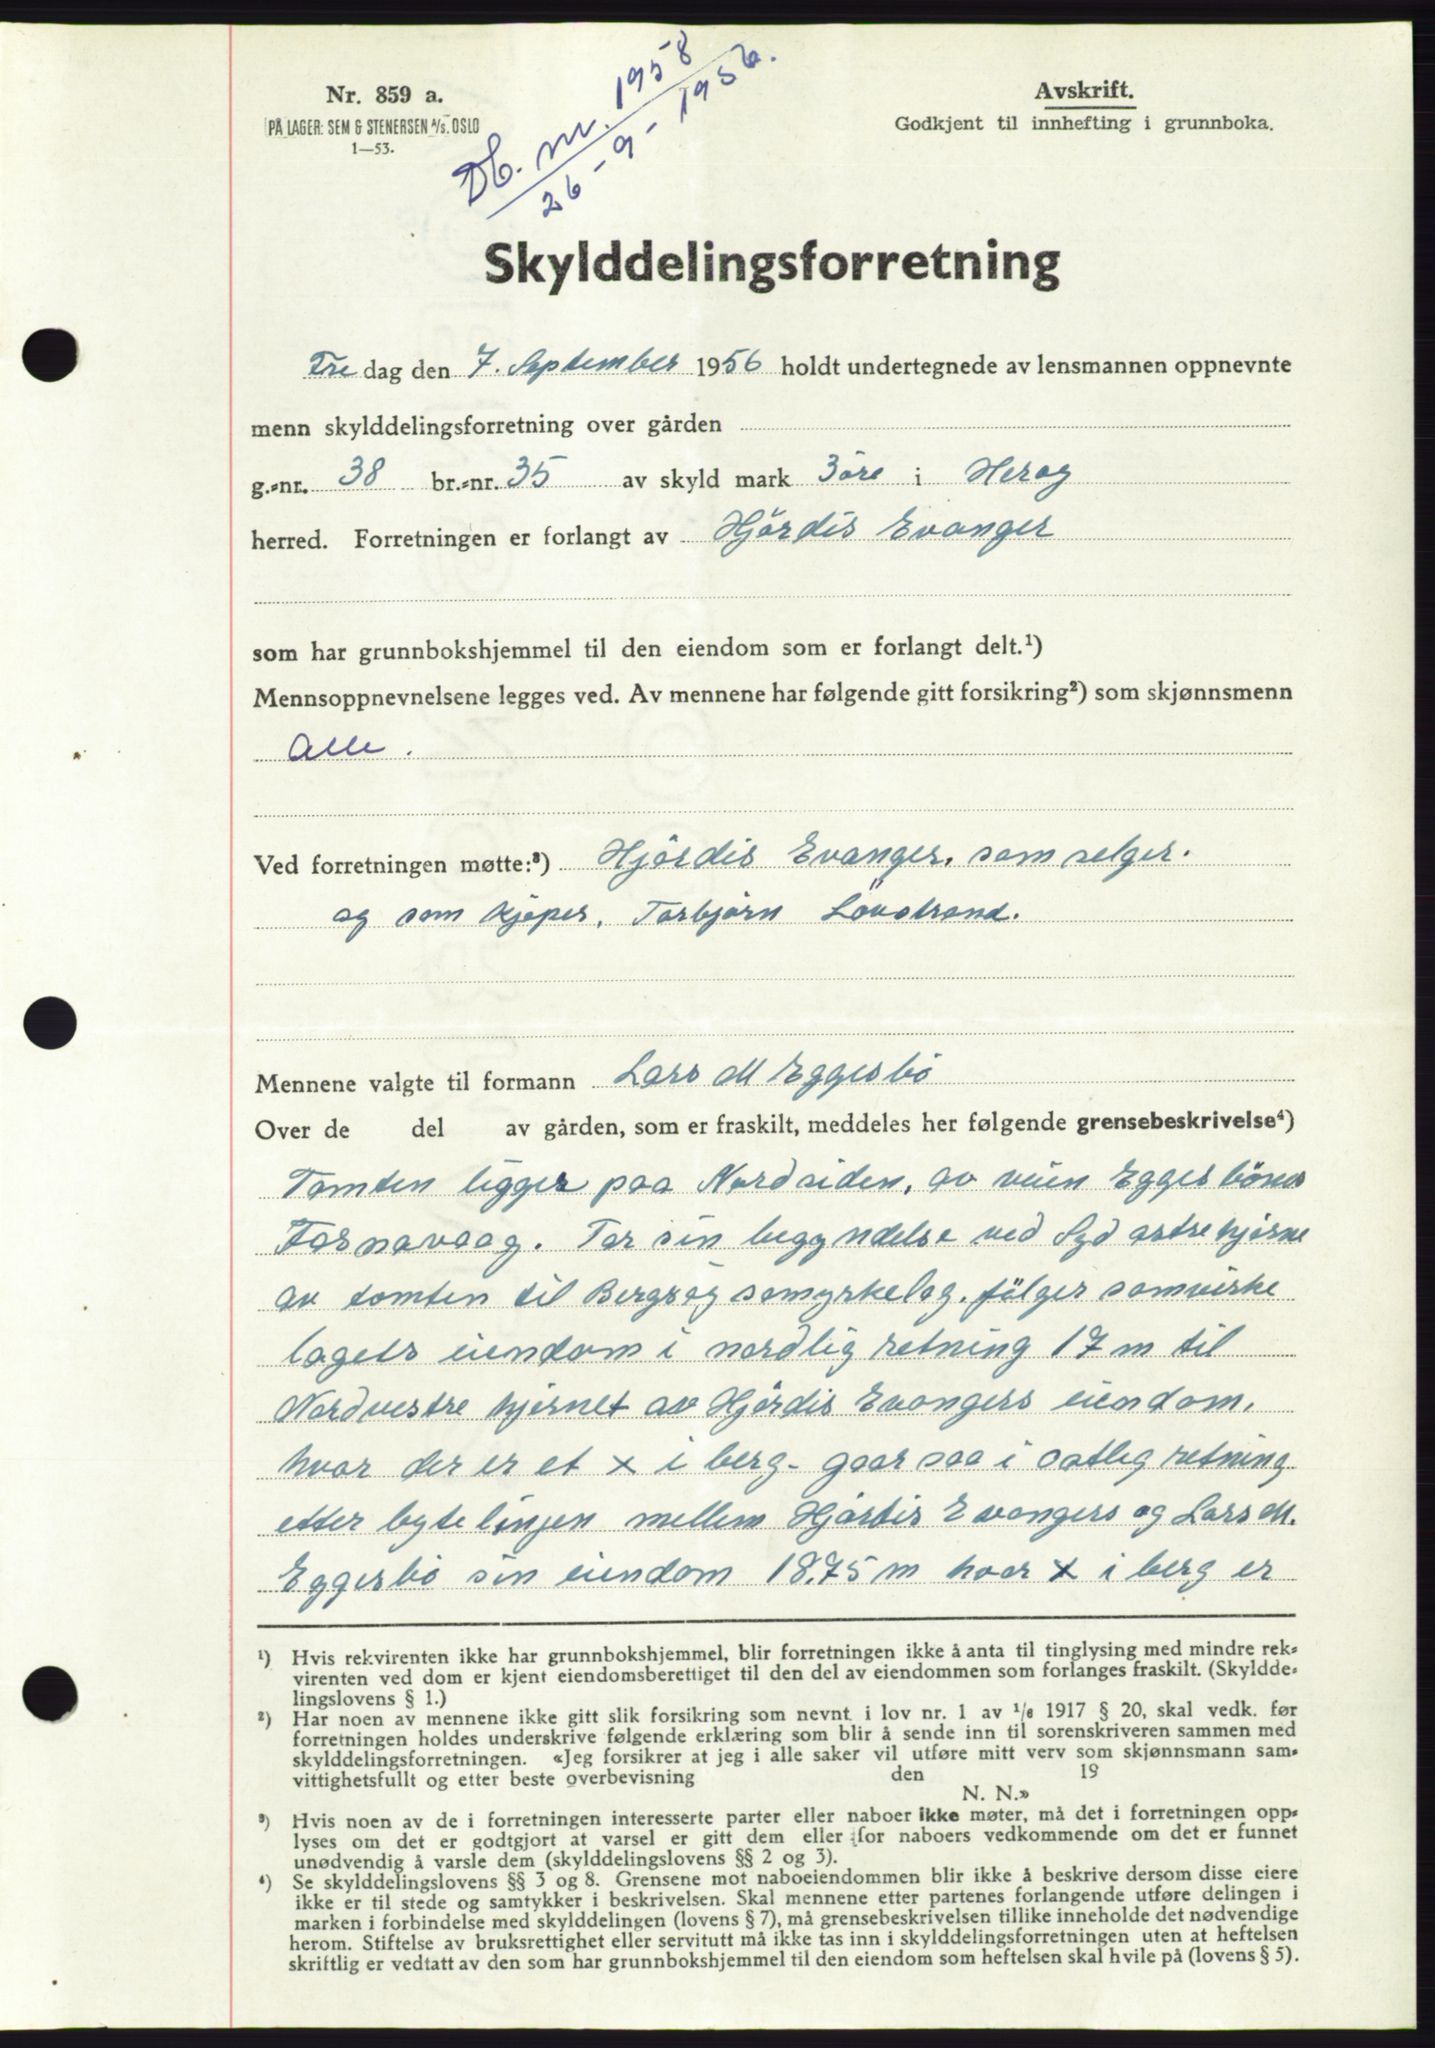 Nr. 859 a.
PÅ LAGER: SEM & STENERSEN A/S. OSLO
1—53.
Db. nr. 1958
26-9-1956.
Avskrift.
Godkjent til innhefting i grunnboka.
Skylddelingsforretning
Fre dag den 7. September 1956 holdt undertegnede av lensmannen oppnevnte
menn skylddelingsforretning over gården
g.-nr. 38 br.-nr. 35 av skyld mark 3 öre i Heröy
herred. Forretningen er forlangt av Hjördis Evanger
som har grunnbokshjemmel til den eiendom som er forlangt delt.¹)
Mennsoppnevnelsene legges ved. Av mennene har følgende gitt forsikring²) som skjønnsmenn
Alle.
Ved forretningen møtte:³) Hjördis Evanger, som selger.
og som kjøper, Torbjørn Lövstrand.
Mennene valgte til formann Lars M Eggesbö
Over de del av gården, som er fraskilt, meddeles her følgende grensebeskrivelse⁴)
Tomten ligger paa Nordsiden, av veien Eggesbönes
Fosnavaag. Tar sin begyndelse ved Syd østre hjørne
av tomten til Bergsöy samyrkelag. følger samvirke
lagets eiendom i nordlig retning 17 m til
Nordvestre hjørnet av Hjördis Evangers eiendom,
hvor der er et x i berg- gaar saa i østlig retning
etter byte linjen mellem Hjördis Evangers og Lars M.
Eggesbö sin eiendom 18.75 m hvor x i berg er
¹) Hvis rekvirenten ikke har grunnbokshjemmel, blir forretningen ikke å anta til tinglysing med mindre rek-
virenten ved dom er kjent eiendomsberettiget til den del av eiendommen som forlanges fraskilt. (Skyldde-
lingslovens § 1.)
²) Har noen av mennene ikke gitt slik forsikring som nevnt i lov nr. 1 av 1/6 1917 § 20, skal vedk. før
forretningen holdes underskrive følgende erklæring som blir å sende inn til sorenskriveren sammen med
skylddelingsforretningen. «Jeg forsikrer at jeg i alle saker vil utføre mitt verv som skjønnsmann sam-
vittighetsfullt og etter beste overbevisning den 19
N. N.»
³) Hvis noen av de i forretningen interesserte parter eller naboer ikke møter, må det i forretningen opp-
lyses om det er godtgjort at varsel er gitt dem eller for naboers vedkommende om det er funnet
unødvendig å varsle dem (skylddelingslovens §§ 2 og 3).
⁴) Se skylddelingslovens §§ 3 og 8. Grensene mot naboeiendommen blir ikke å beskrive dersom disse eiere
ikke er til stede og samtykker i beskrivelsen. Skal mennene etter partenes forlangende utføre delingen i
marken i forbindelse med skylddelingen (lovens § 7), må grensebeskrivelsen tillike inneholde det nødvendige
herom. Stiftelse av bruksrettighet eller servitutt må ikke tas inn i skylddelingsforretningen uten at heftelsen
skriftlig er vedtatt av den som har grunnbokshjemmel til den eiendom som heftelsen skal hvile på (lovens § 5).